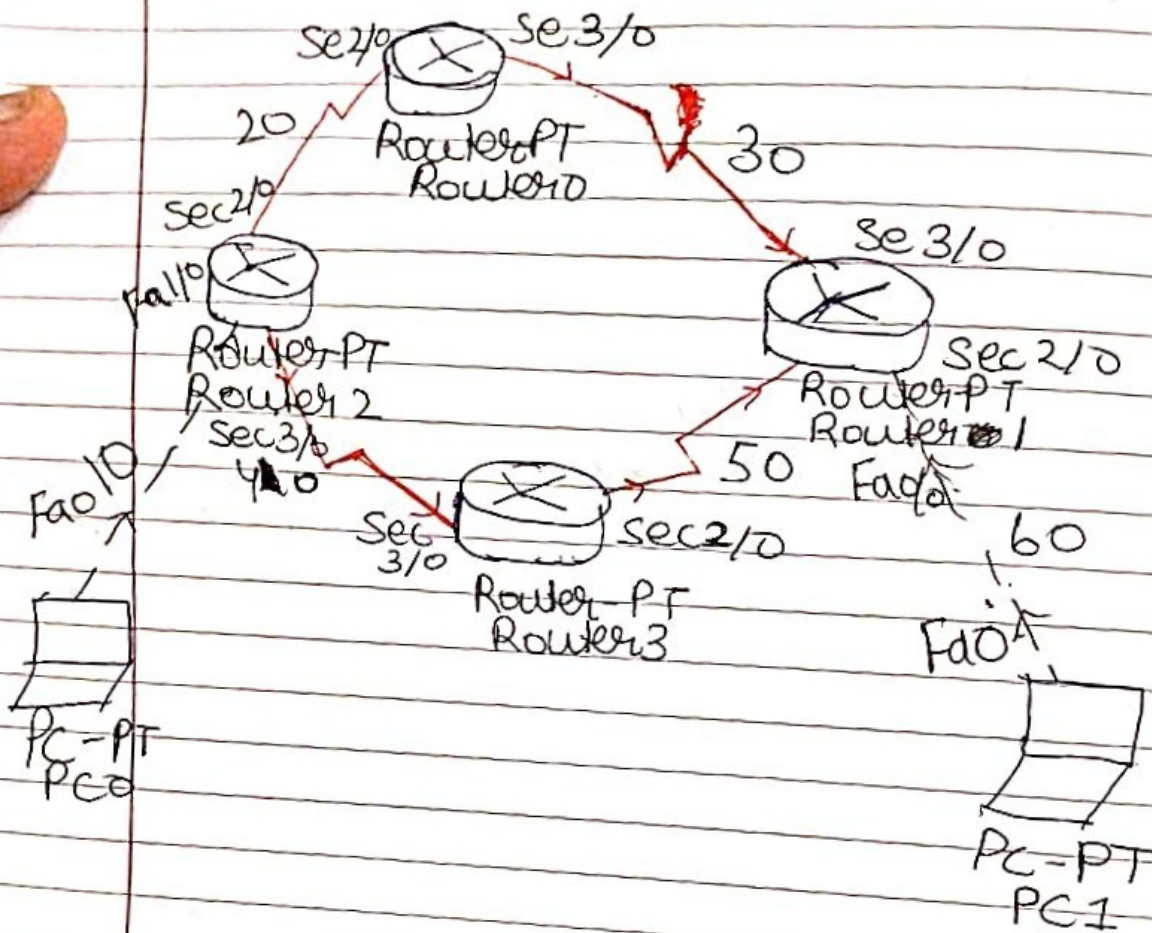 Se2/0
Se3/0
20
Router-PT
Router0
30
Sec2/0
Se3/0
Fa1/0
Router-PT
Router2
Sec2/0
Router-PT
Router1
Sec3/0
40
50
Fa0
10
Sec
3/0
Sec2/0
60
Router-PT
Router3
Fa0
PC-PT
PC0
PC-PT
PC1